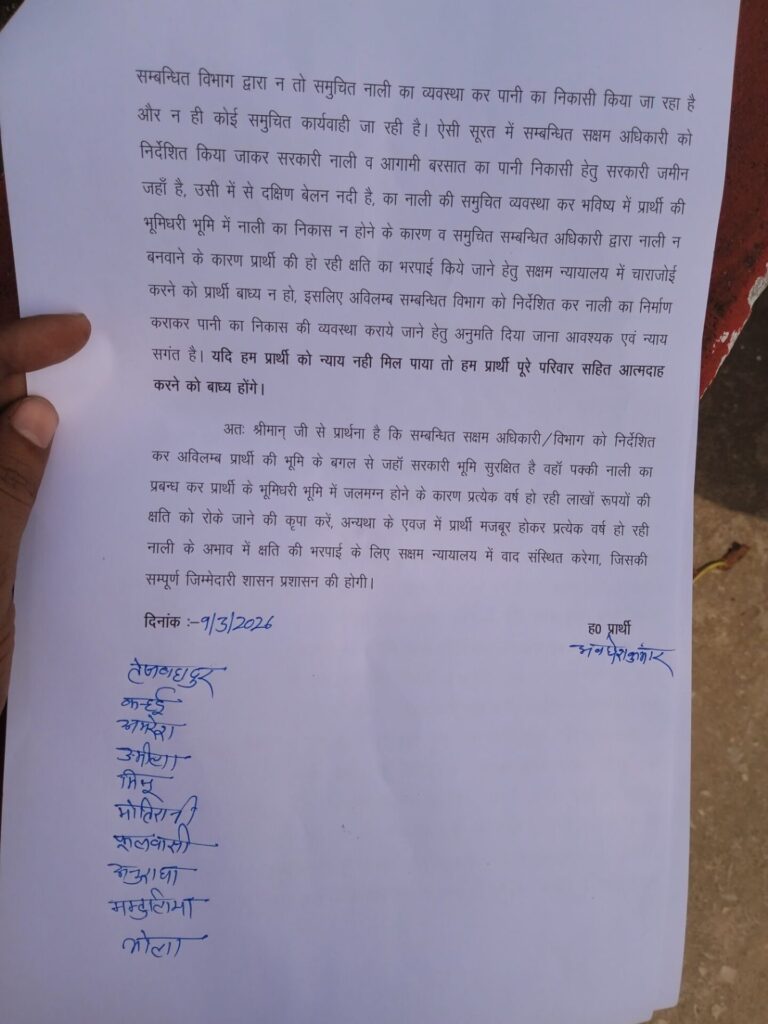 सम्बन्धित विभाग द्वारा न तो समुचित नाली का व्यवस्था कर पानी का निकासी किया जा रहा है
और न ही कोई समुचित कार्यवाही जा रही है। ऐसी सूरत में सम्बन्धित सक्षम अधिकारी को
निर्देशित किया जाकर सरकारी नाली व आगामी बरसात का पानी निकासी हेतु सरकारी जमीन
जहाँ है, उसी में से दक्षिण बेलन नदी है, का नाली की समुचित व्यवस्था कर भविष्य में प्रार्थी की
भूमिधरी भूमि में नाली का निकास न होने के कारण व समुचित सम्बन्धित अधिकारी द्वारा नाली न
बनवाने के कारण प्रार्थी की हो रही क्षति का भरपाई किये जाने हेतु सक्षम न्यायालय में चाराजोई
करने को प्रार्थी बाध्य न हो, इसलिए अविलम्ब सम्बन्धित विभाग को निर्देशित कर नाली का निर्माण
कराकर पानी का निकास की व्यवस्था कराये जाने हेतु अनुमति दिया जाना आवश्यक एवं न्याय
सगंत है। यदि हम प्रार्थी को न्याय नही मिल पाया तो हम प्रार्थी पूरे परिवार सहित आत्मदाह
करने को बाध्य होंगे।
अतः श्रीमान् जी से प्रार्थना है कि सम्बन्धित सक्षम अधिकारी/विभाग को निर्देशित
कर अविलम्ब प्रार्थी की भूमि के बगल से जहाँ सरकारी भूमि सुरक्षित है वहाँ पक्की नाली का
प्रबन्ध कर प्रार्थी के भूमिधरी भूमि में जलमग्न होने के कारण प्रत्येक वर्ष हो रही लाखों रूपयों की
क्षति को रोके जाने की कृपा करें, अन्यथा के एवज में प्रार्थी मजबूर होकर प्रत्येक वर्ष हो रही
नाली के अभाव में क्षति की भरपाई के लिए सक्षम न्यायालय में वाद संस्थित करेगा, जिसकी
सम्पूर्ण जिम्मेदारी शासन प्रशासन की होगी।
दिनांक :-9/3/2026
ह0 प्रार्थी
अवधेश कुमार
तेजबहादुर
कन्हई
अमरेश
उर्मिला
मिनू
मोतिरानी
फूलवासी
अनुराधा
भोला